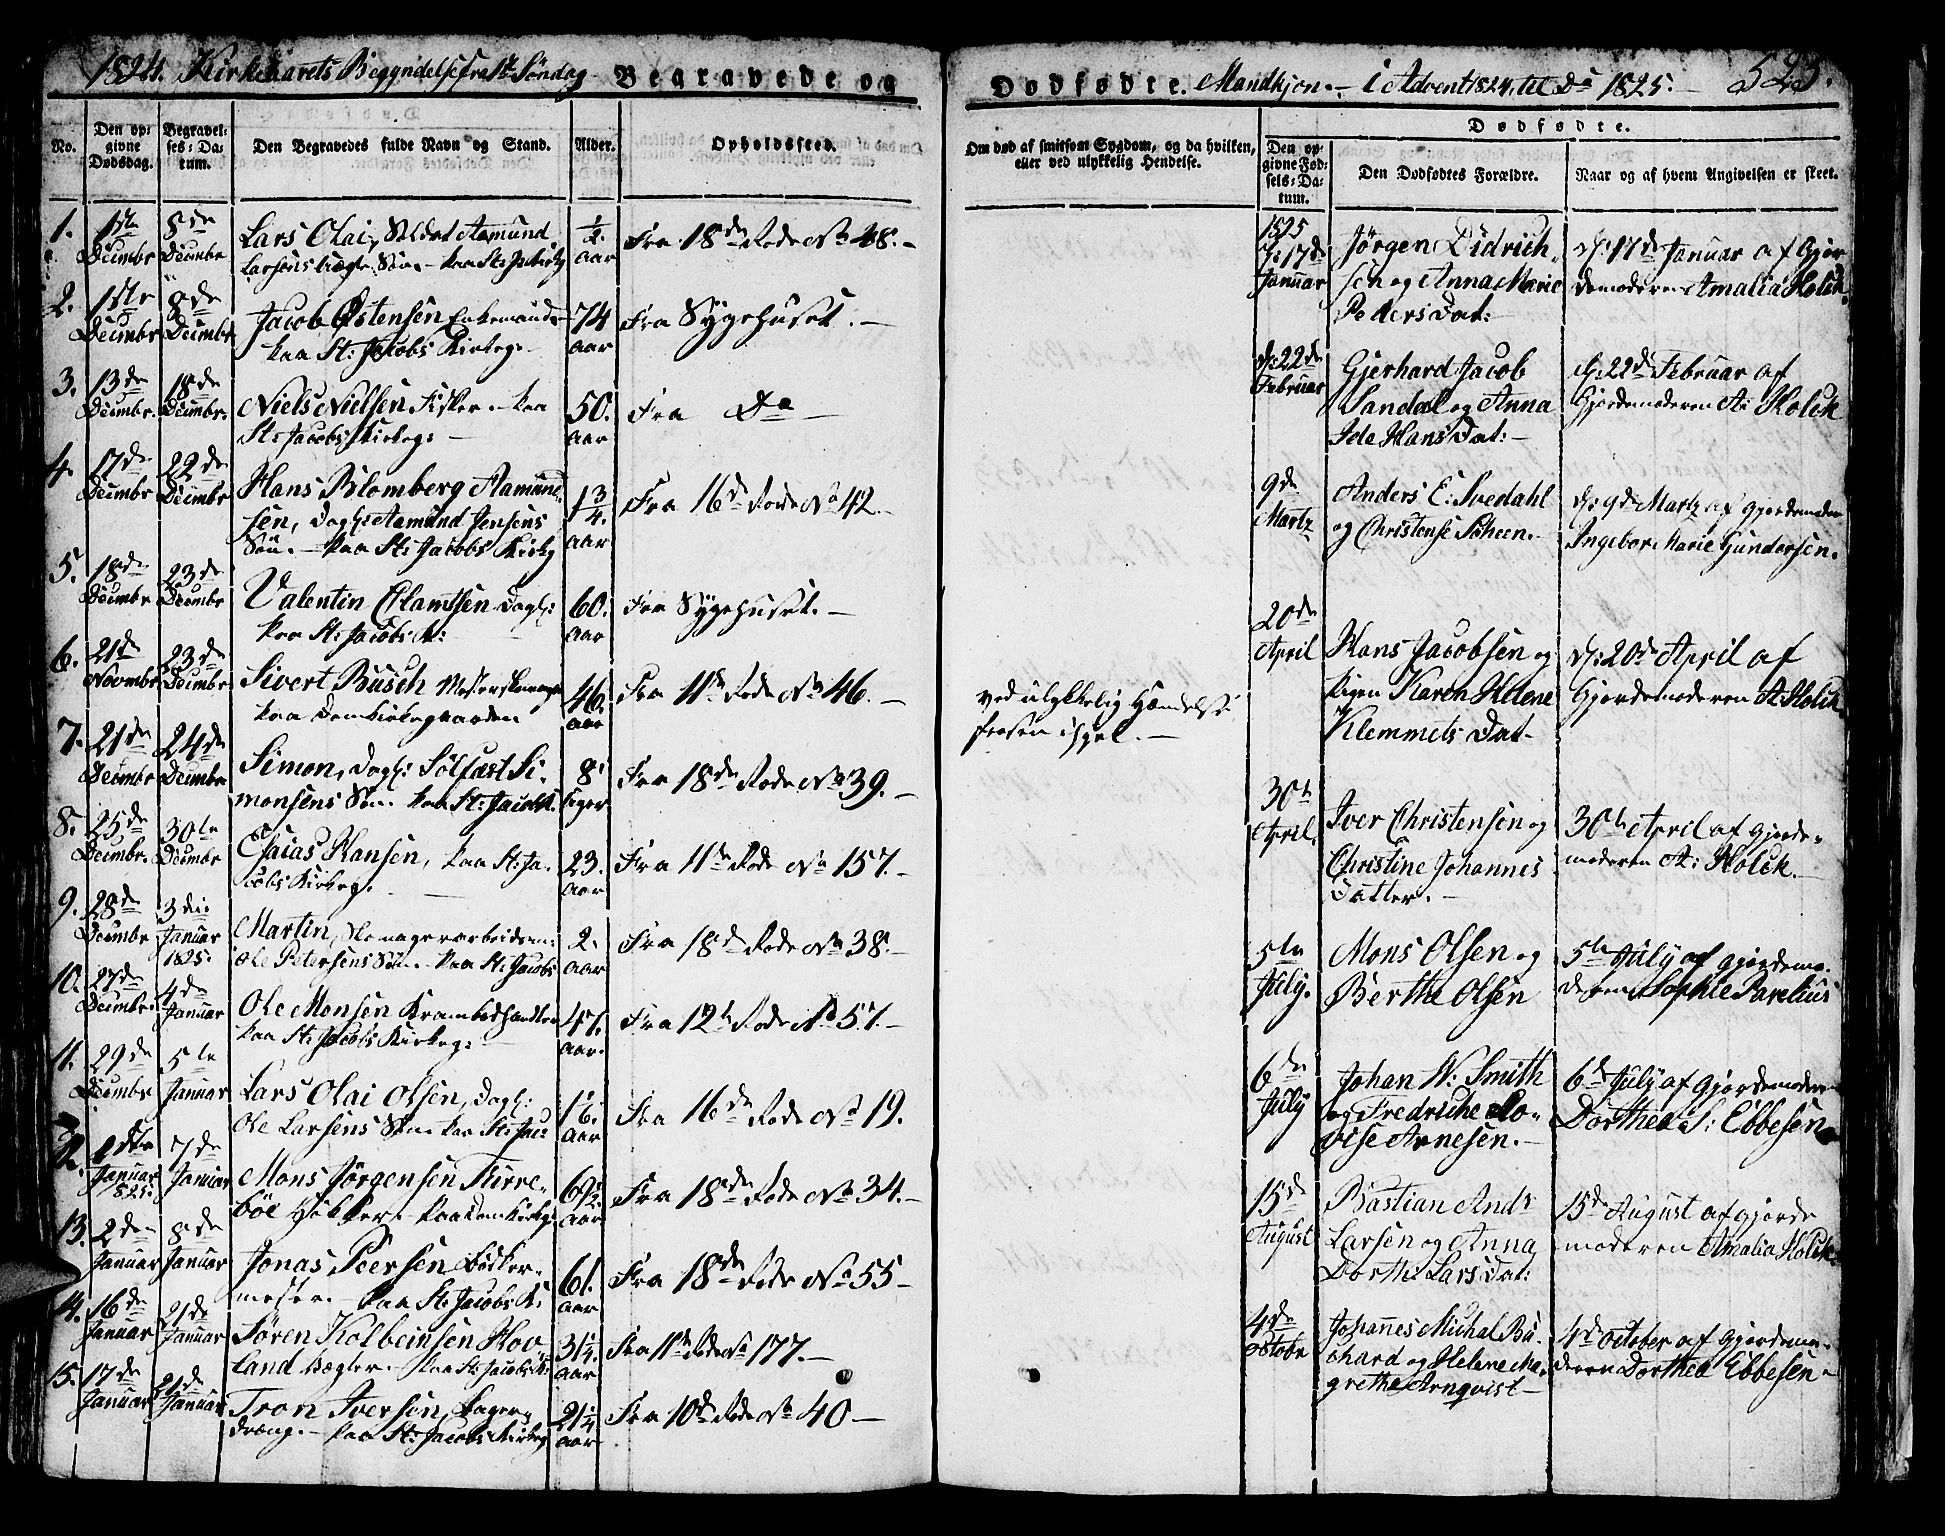 1824. Kirkeaarets Begyndelse fra 1ste Søndag Begravede og Dødfødte. Mandkjøn. i Advent 1824, til Do 1825. 523.
No.
Den opgivne Dødsdag.
Begravelses-Datum.
Den Begravedes fulde Navn og Stand.
Alder.
Opholdssted.
Om død af smitsom Sygdom, og da hvilken,
eller ved ulykkelig Hendelse.
Dødfødte.
Den opgivne Fødsels-Datum.
Den Dødfødtes Forældre.
Naar og af hvem Angivelsen er skeet.
1. 1ste Decembr 8de Decembr Lars Olai, Soldat Aamund
Larsens Søn. - paa St: Jac: Kirkg 1/2 aar Fra 18de Rode No 48. -
2. 1ste Decembr 8de Decembr Jacob Østensen Enkemand
paa St: Jacobs Kirkeg. - 74 aar Fra Sygehuset. -
3. 13de Decembr. 18de Decembr. Niels Nielsen Fisker. - paa
St: Jacobs Kirkeg: - 50. aar Fra Do -
4. 17de Decembr 22de Decembr Hans Blomberg Aamund-
sen, Dagl: Aamund Jensens
Søn. - paa St: Jacobs Kirkg 1 3/4. aar Fra 16de Rode No 42. -
5. 18de Decembr 23de Decembr Valentin Clamtsen Dagl:
paa St: Jacobs K: 60. aar Fra Sygehuset. -
6. 21de Novembr 23de Decembr Sivert Busch
paa Domkirkegaarden 46. aar Fra 11te Rode No 46. - ved ulykkelig Hændelse
frosen ihjel. -
7. 21de Decembr 24de Decembr Simon, Dagl: Solfæst Si-
monsens Søn. paa St: Jacobs K. 8. Uger Fra 18de Rode No 39. -
8. 25de Decembr. 30te Decembr Esaias Hansen, paa St: Ja-
cobs Kirkeg. - 23. aar Fra 11te Rode No 157. -
9. 28de Decembr 3die Januar 1825. Martin,
Ole Petersens Søn. - paa St: Jacobs 2. aar Fra 18de Rode No 38. -
10. 27de Decembr. 4de Januar Ole Monsen Krambodhandler
paa St: Jacobs Kirkeg: - 47. aar. Fra 12te Rode No 57. -
11. 29de Decembr 5te Januar Lars Olai Olsen, Dagl:
Ole Larsens Søn. paa St: Jac: aar Fra 16de Rode No 19.
12. 1ste Januar 1825. 7de Januar Mons Jørgensen Kirre-
bøe Høkker. - paa Domkirkg: 69 1/2. aar Fra 18de Rode No 34. -
13. 2de Januar 8de Januar Jonas Peersen Bødker-
mester. - paa St: Jacobs K: 61. aar Fra 18de Rode No 55 -
14. 16de Januar 21de Januar Søren Kolbeinsen Hov-
land Vægter. - paa St: Jacobs K: 31 1/4. aar Fra 11te Rode No 177. -
15. 17de Januar 21de Januar Tron Iversen, Bager-
dreng. - paa St: Jacobs Kirkeg 21 1/4 aar Fra 10de Rode No 40 -
1825
d: 17de Januar Jørgen Didrich-
sen og Anna Marie
Peders Dat: d: 17de Januar af Gjor-
demoderen Amalia Holck.
d: 22de Februar Gjerhard Jacob
Sandal og Anna
Ide Hans Dat: - d: 22de Februar af
Gjordemoderen A: Holck
9de Martz Anders E: Svedahl
og Christense Scheen. - d: 9de Martz af Gjordemoder
Ingebor Marie Gundersen.
20de April Hans Jacobsen og
Pigen Karen Helene
Klemmets Dat - d: 20de April af
Gjordemoderen A: Holck.
30te April. Iver Christensen og
Christine Johannes
Datter. - 30te April af Gjorde-
moderen A: Holck. -
5te July. Mons Olsen og
Berthe Olsen 5te July af Gjordemo-
deren Sophie Parelius
6te July Johan W: Smith
og Fredriche Lo-
vise Arnesen. - 6te July af Gjordemoderen
Dorthea S: Ebbesen
15de August Bastian Ands
Larsen og Anna
Dorthe Lars Dat: 15de August af Gjorde-
moderen Amalia Holck.
4de Octobr Johannes Michal Bu-
chard og Helene Ma-
grethe Arnqvist - 4de October af Gjordemo-
deren Dorthea Ebbesen -